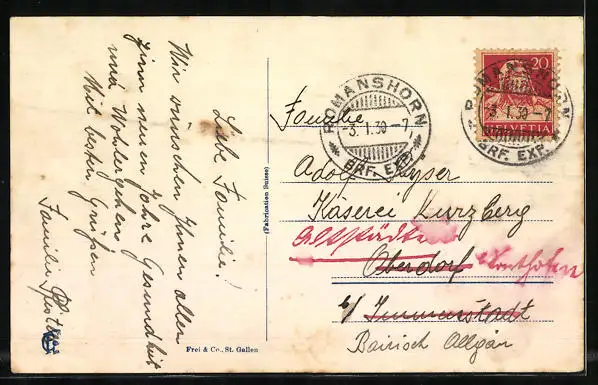 Liebe Familie!
Wir wünschen Ihnen allen
zum neuen Jahre Gesundheit
und Wohlergehen
Mit besten Grüßen
Familie
(Fabrication Suisse)
Frei & Co., St. Gallen
ROMANSHORN
-3. I. 30 -7
BRF. EXP.
20
HELVETIA
ROMANSHORN
-3. I. 30 -7
BRF. EXP.
Familie
Adolf Gyser
Käserei Kurzberg
Altstädten
Oberdorf b/Sonthofen
b/ Immenstadt
Bairisch Allgäu